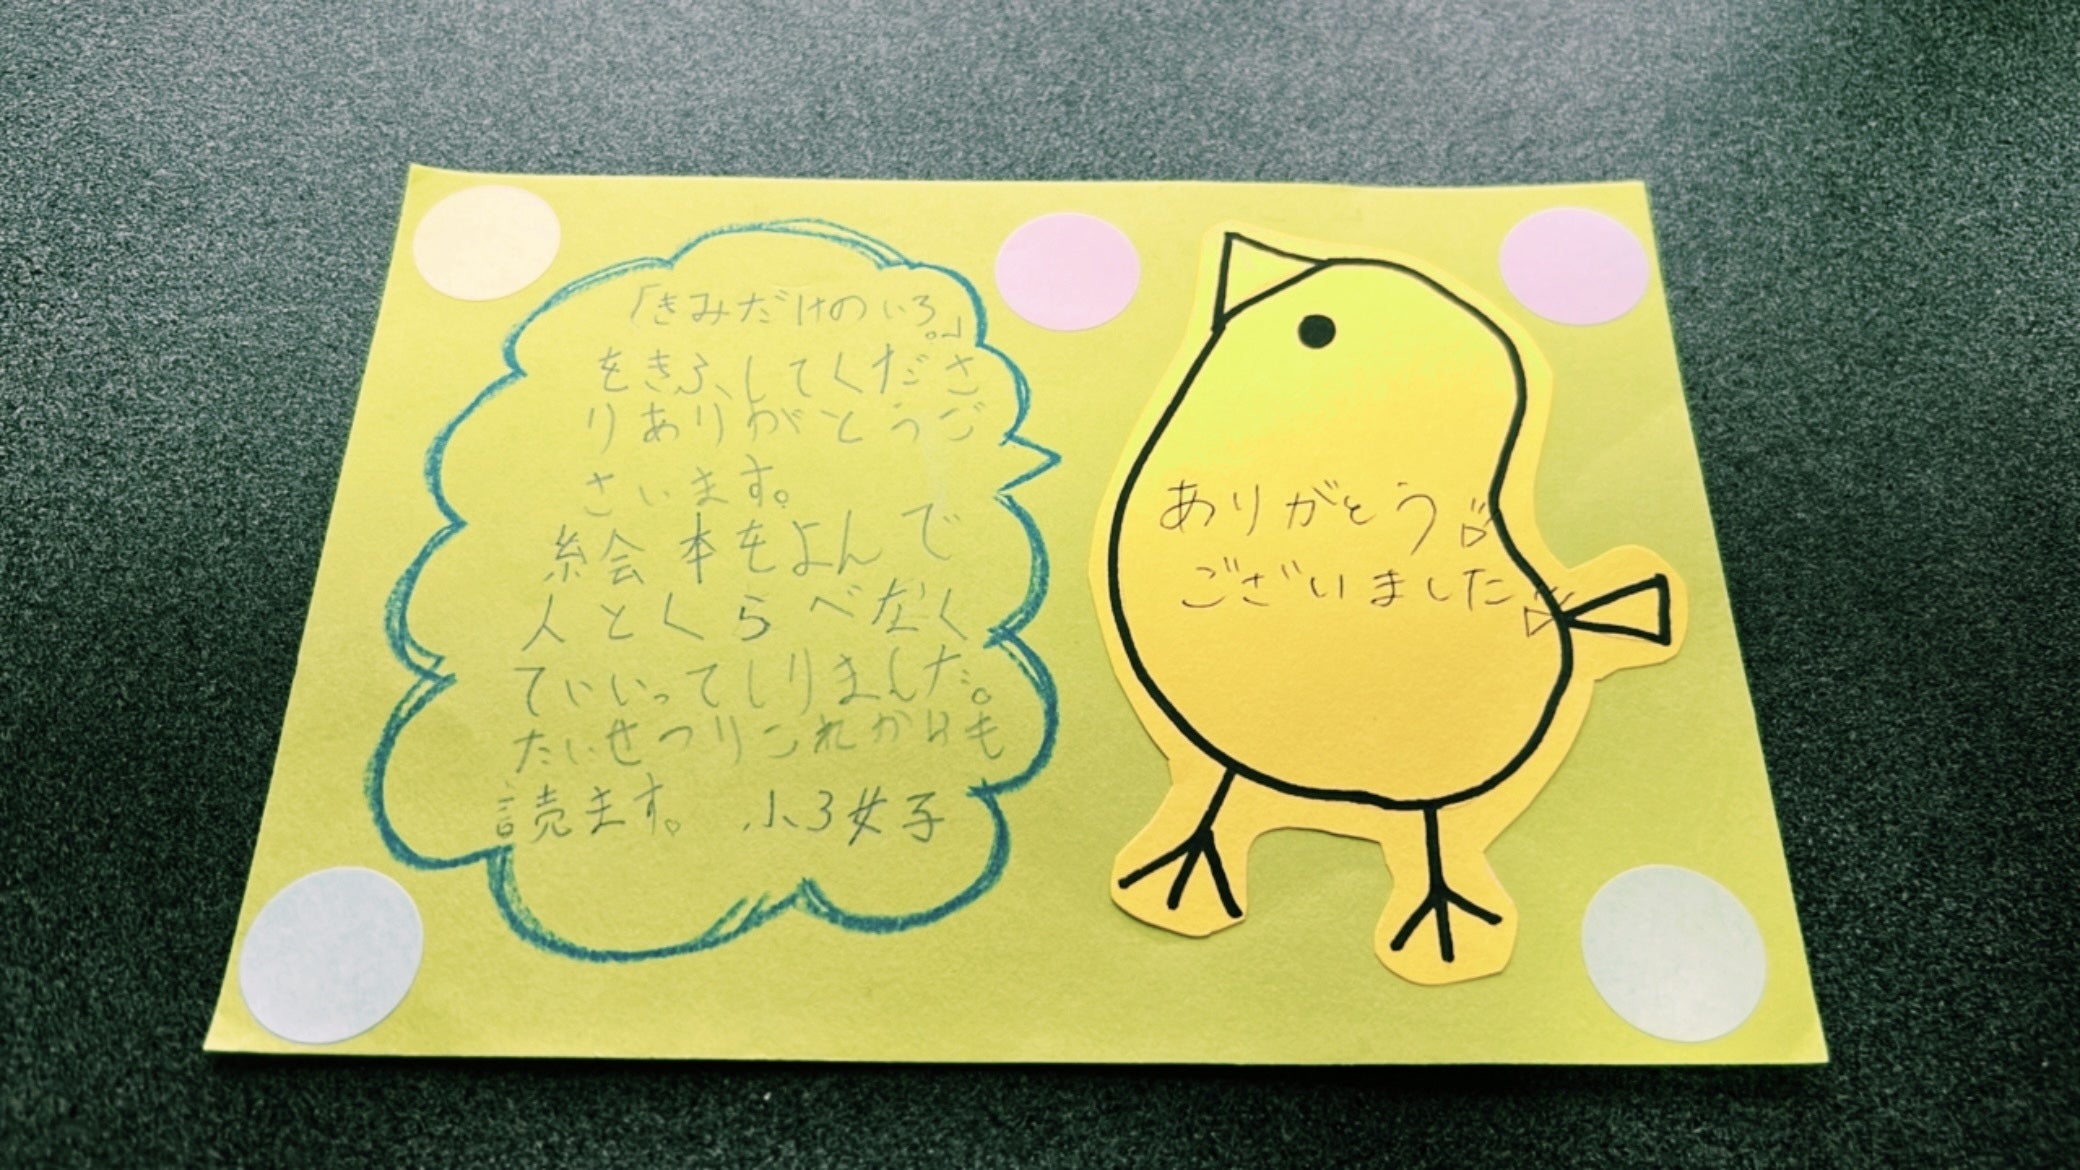 「きみだけのいろ。」
をきふしてくださ
りありがとうご
さいます。
絵会本をよんで
人とくらべなく
ていいってしりました。
たいせつりこれからも
読ます。 小3女子
ありがとう
ございました